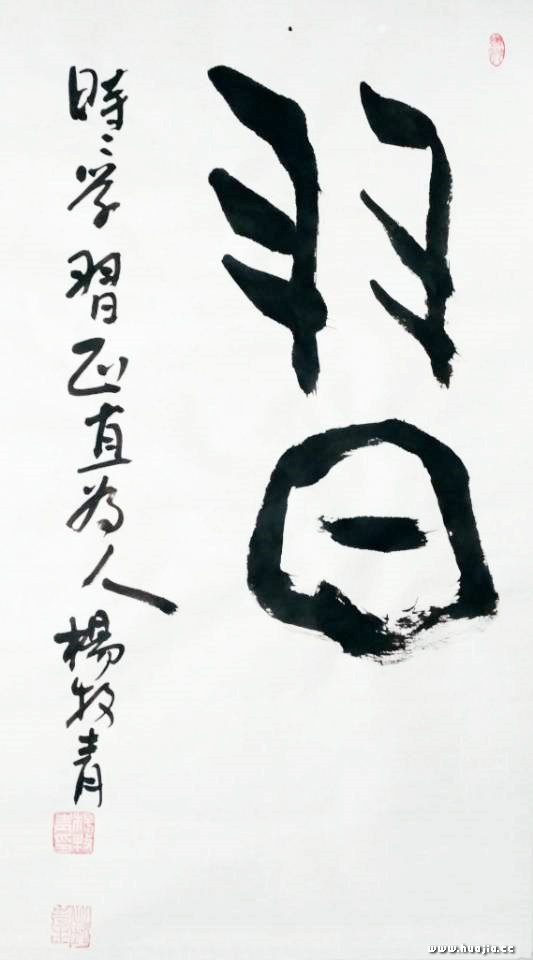 習
時々学習正直為人楊牧青
www.huajia.cc